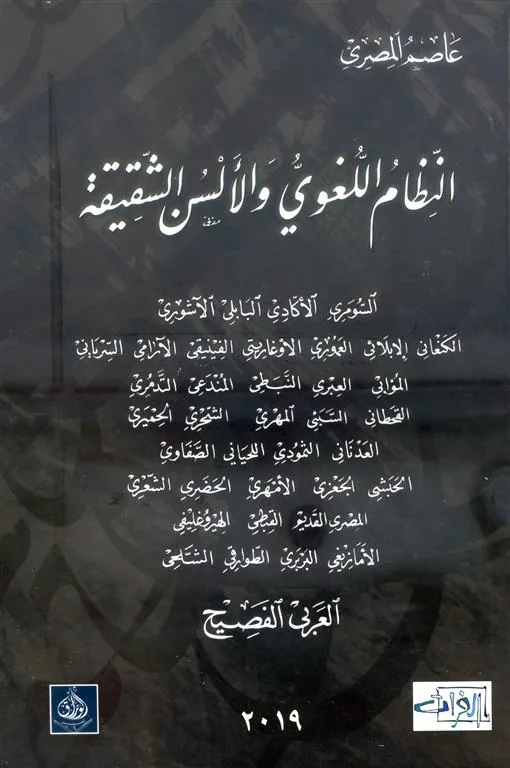 عَاصِم المِصرِي
النِّظَامُ اللُّغَوِيُّ وَالأَلْسُن الشَّقِيقَة
السّومَرِي الأكّادِي البَابلِي الآشورِي
الكنعَانِي الإبلَائِي العمورِي الأوغَارِيتِي الفينِيقِي الآرَامِي السّريَانِي
المُؤَابِي العِبرِي النَّبَطِي المَندَعِي التَّدمُرِي
القَحطَانِي السَّبَئِي المَهرِي الشَّحرِي الحِميَرِي
العَدنَانِي الثمُودِي اللحيَانِي الصَّفَاوِي
الحَبَشِي الجَعزِي الأمْهَرِي الحَضَرِي الشَّعرِي
المصرِي القَدِيم القِبطِي الهِيروغلِيفِي
الأمَازيغِي البَربَرِي الطوَارِقِي الشّلحِي
العَرَبِي الفَصِيح
الورّاق
٢٠١٩
الفرات